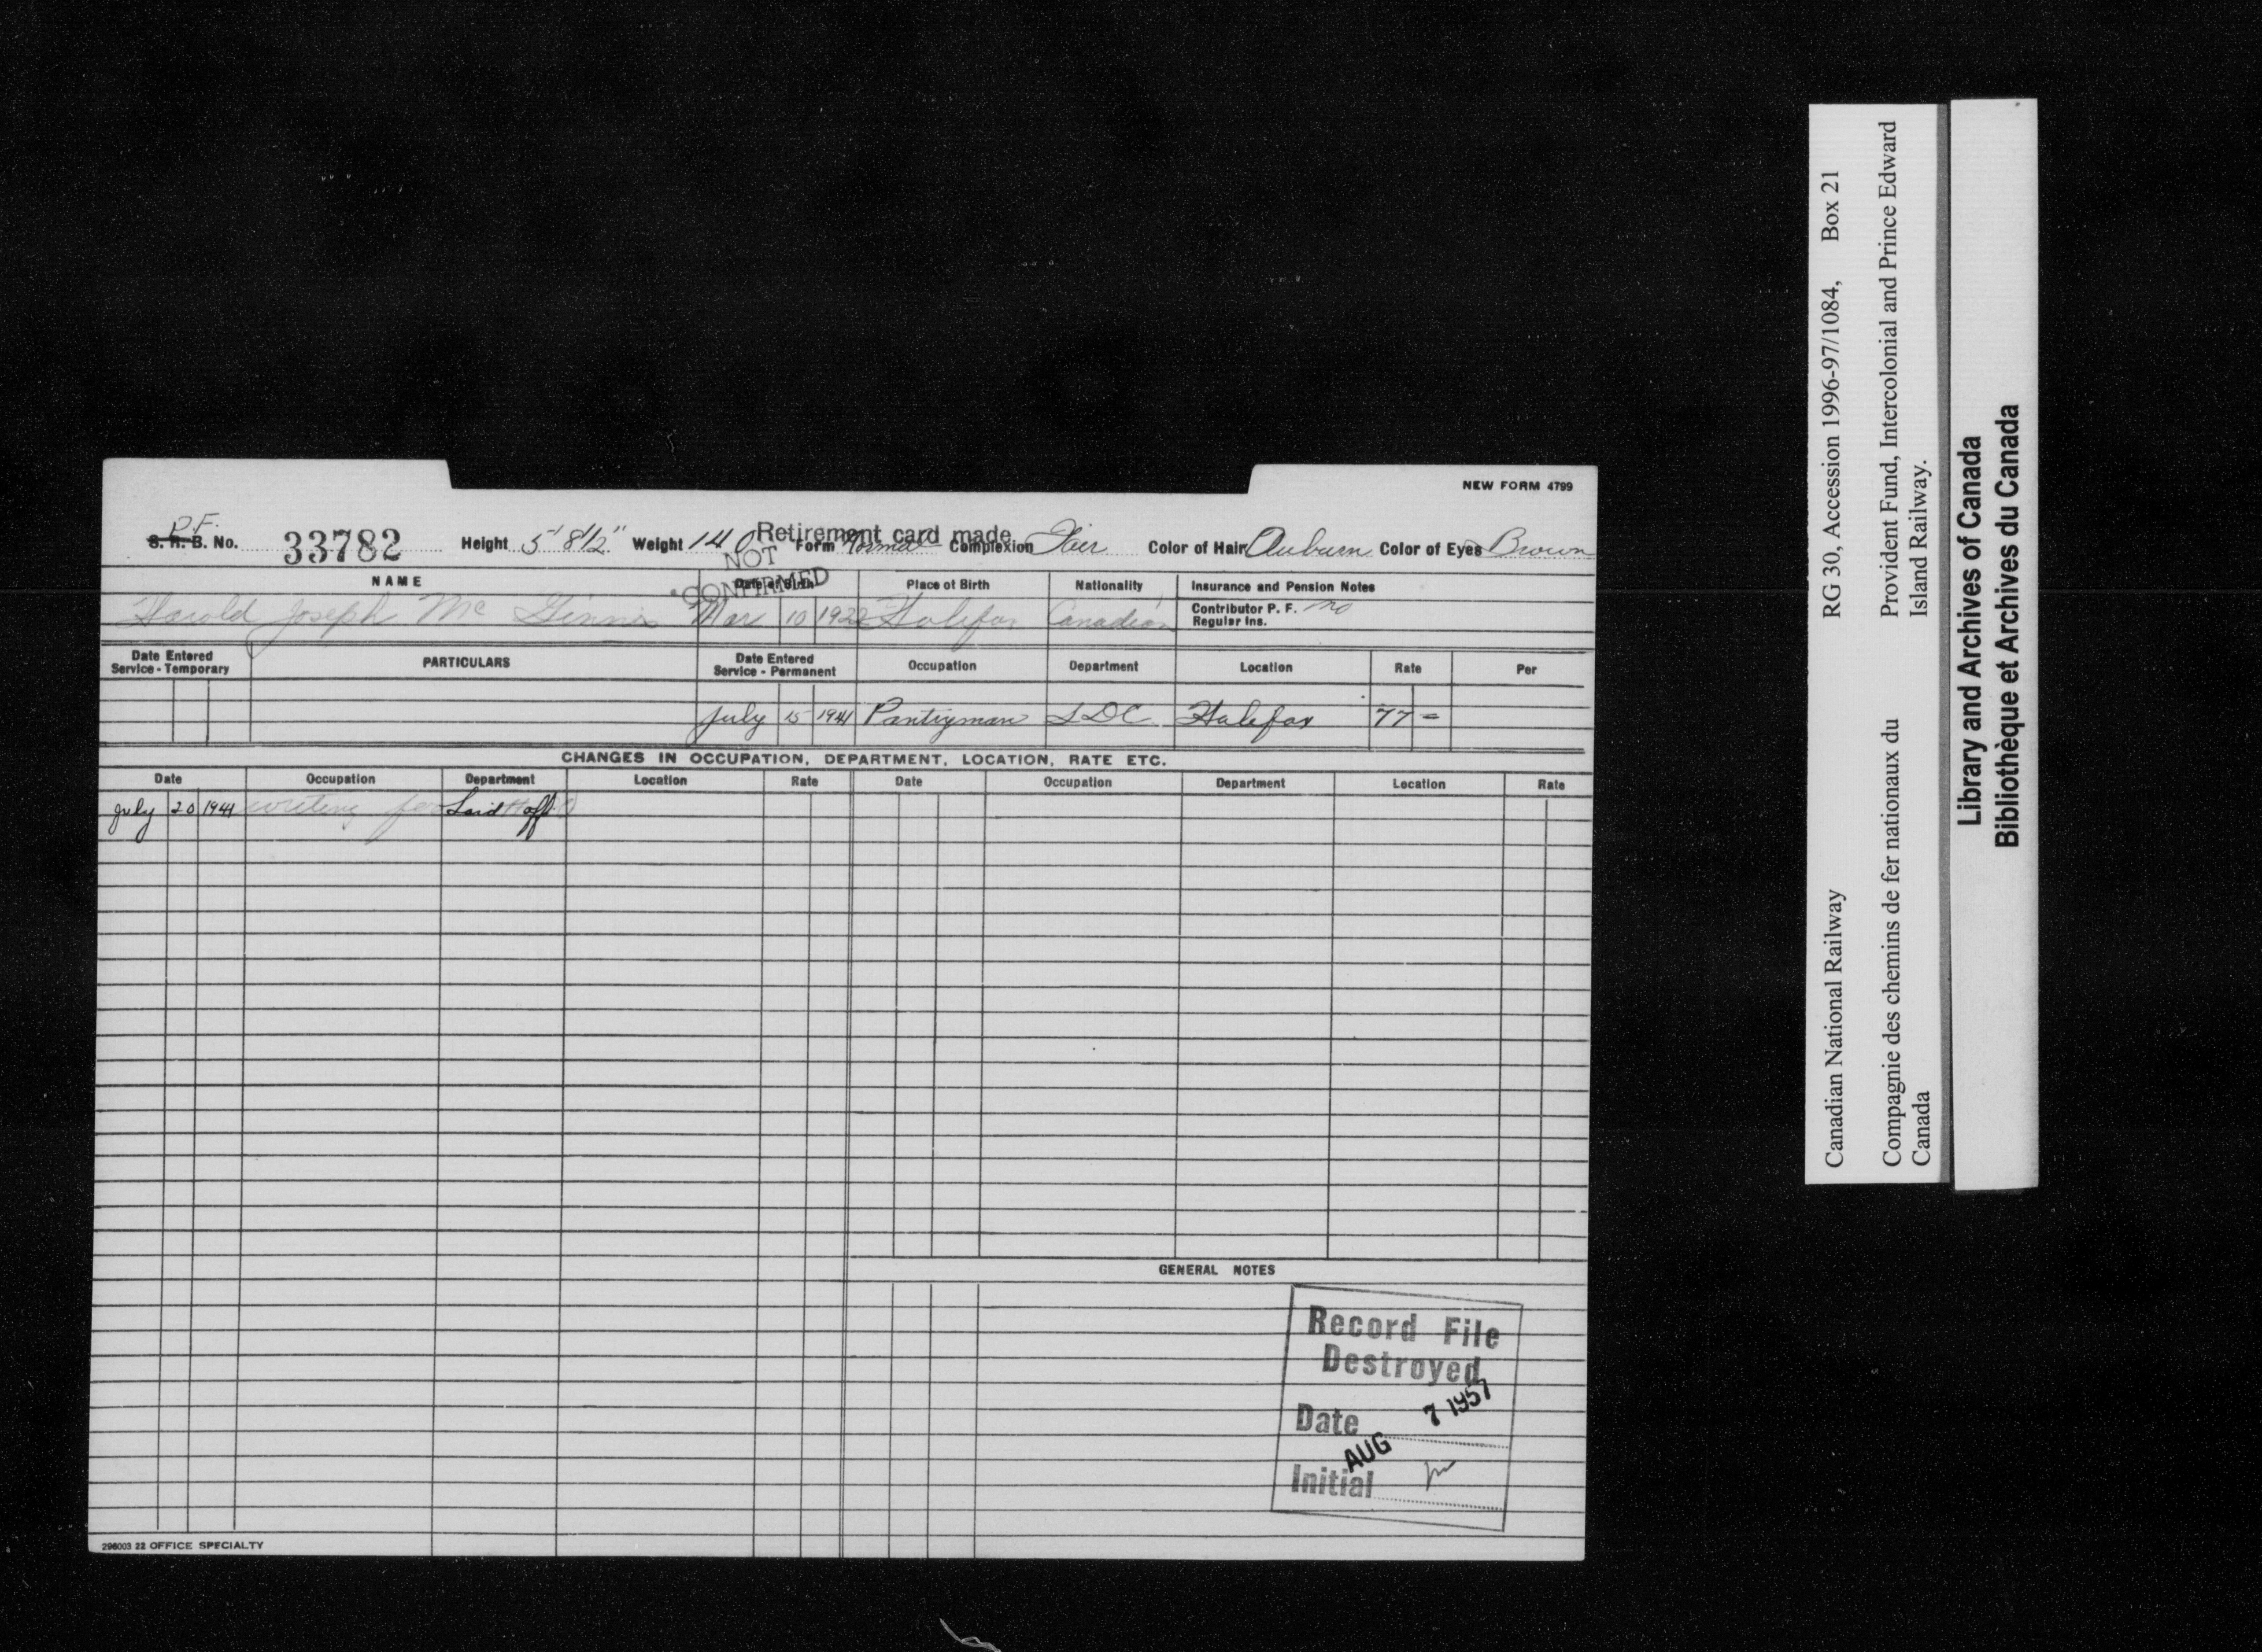 NEW FORM 4799
P.F.
S. R. B. No. 33782 Height 5' 8½" Weight 140 Form Normal Complexion Fair Color of Hair Auburn Color of Eyes Brown
Retirement card made
NOT CONFIRMED
NAME Date of Birth Place of Birth Nationality Insurance and Pension Notes
Harold Joseph Mc Ginnis Mar 10 1922 Halifax Canadian Contributor P. F. no
Regular Ins.
Date Entered Service - Temporary PARTICULARS Date Entered Service - Permanent Occupation Department Location Rate Per
July 15 1941 Pantryman SDC Halifax 77 =
CHANGES IN OCCUPATION, DEPARTMENT, LOCATION, RATE ETC.
Date Occupation Department Location Rate Date Occupation Department Location Rate
July 20 1941 writing for Laid off
GENERAL NOTES
Record File
Destroyed
Date AUG 7 1957
Initial
296003 22 OFFICE SPECIALTY
Canadian National Railway RG 30, Accession 1996-97/1084, Box 21
Compagnie des chemins de fer nationaux du Provident Fund, Intercolonial and Prince Edward
Canada Island Railway.
Library and Archives of Canada
Bibliothèque et Archives du Canada